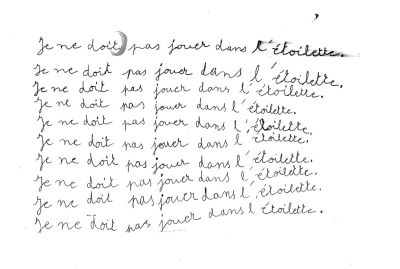 Je ne doit pas jouer dans l'étoilette.
Je ne doit pas jouer dans l'étoilette.
Je ne doit pas jouer dans l'étoilette.
Je ne doit pas jouer dans l'étoilette.
Je ne doit pas jouer dans l'étoilette.
Je ne doit pas jouer dans l'étoilette.
Je ne doit pas jouer dans l'étoilette.
Je ne doit pas jouer dans l'étoilette.
Je ne doit pas jouer dans l'étoilette.
Je ne doit pas jouer dans l'étoilette.